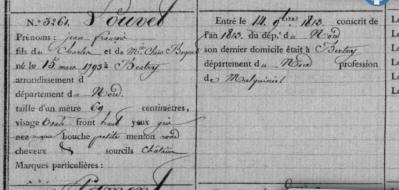 N.° 3261. Louvel
Prénoms : jean françois
fils de Charles et de M.e Claire
né le 15 mars 1793 à Bertry
arrondissement d
département du Nord.
taille d'un mètre 69 centimètres,
visage ovale front haut yeux gris
nez bouche petite menton rond
cheveux & sourcils châtains
Marques particulières :
Entré le 14 9bre 1813. conscrit de
l'an 1813. du dép.t du Nord
son dernier domicile était à Bertry
département du Nord profession
de